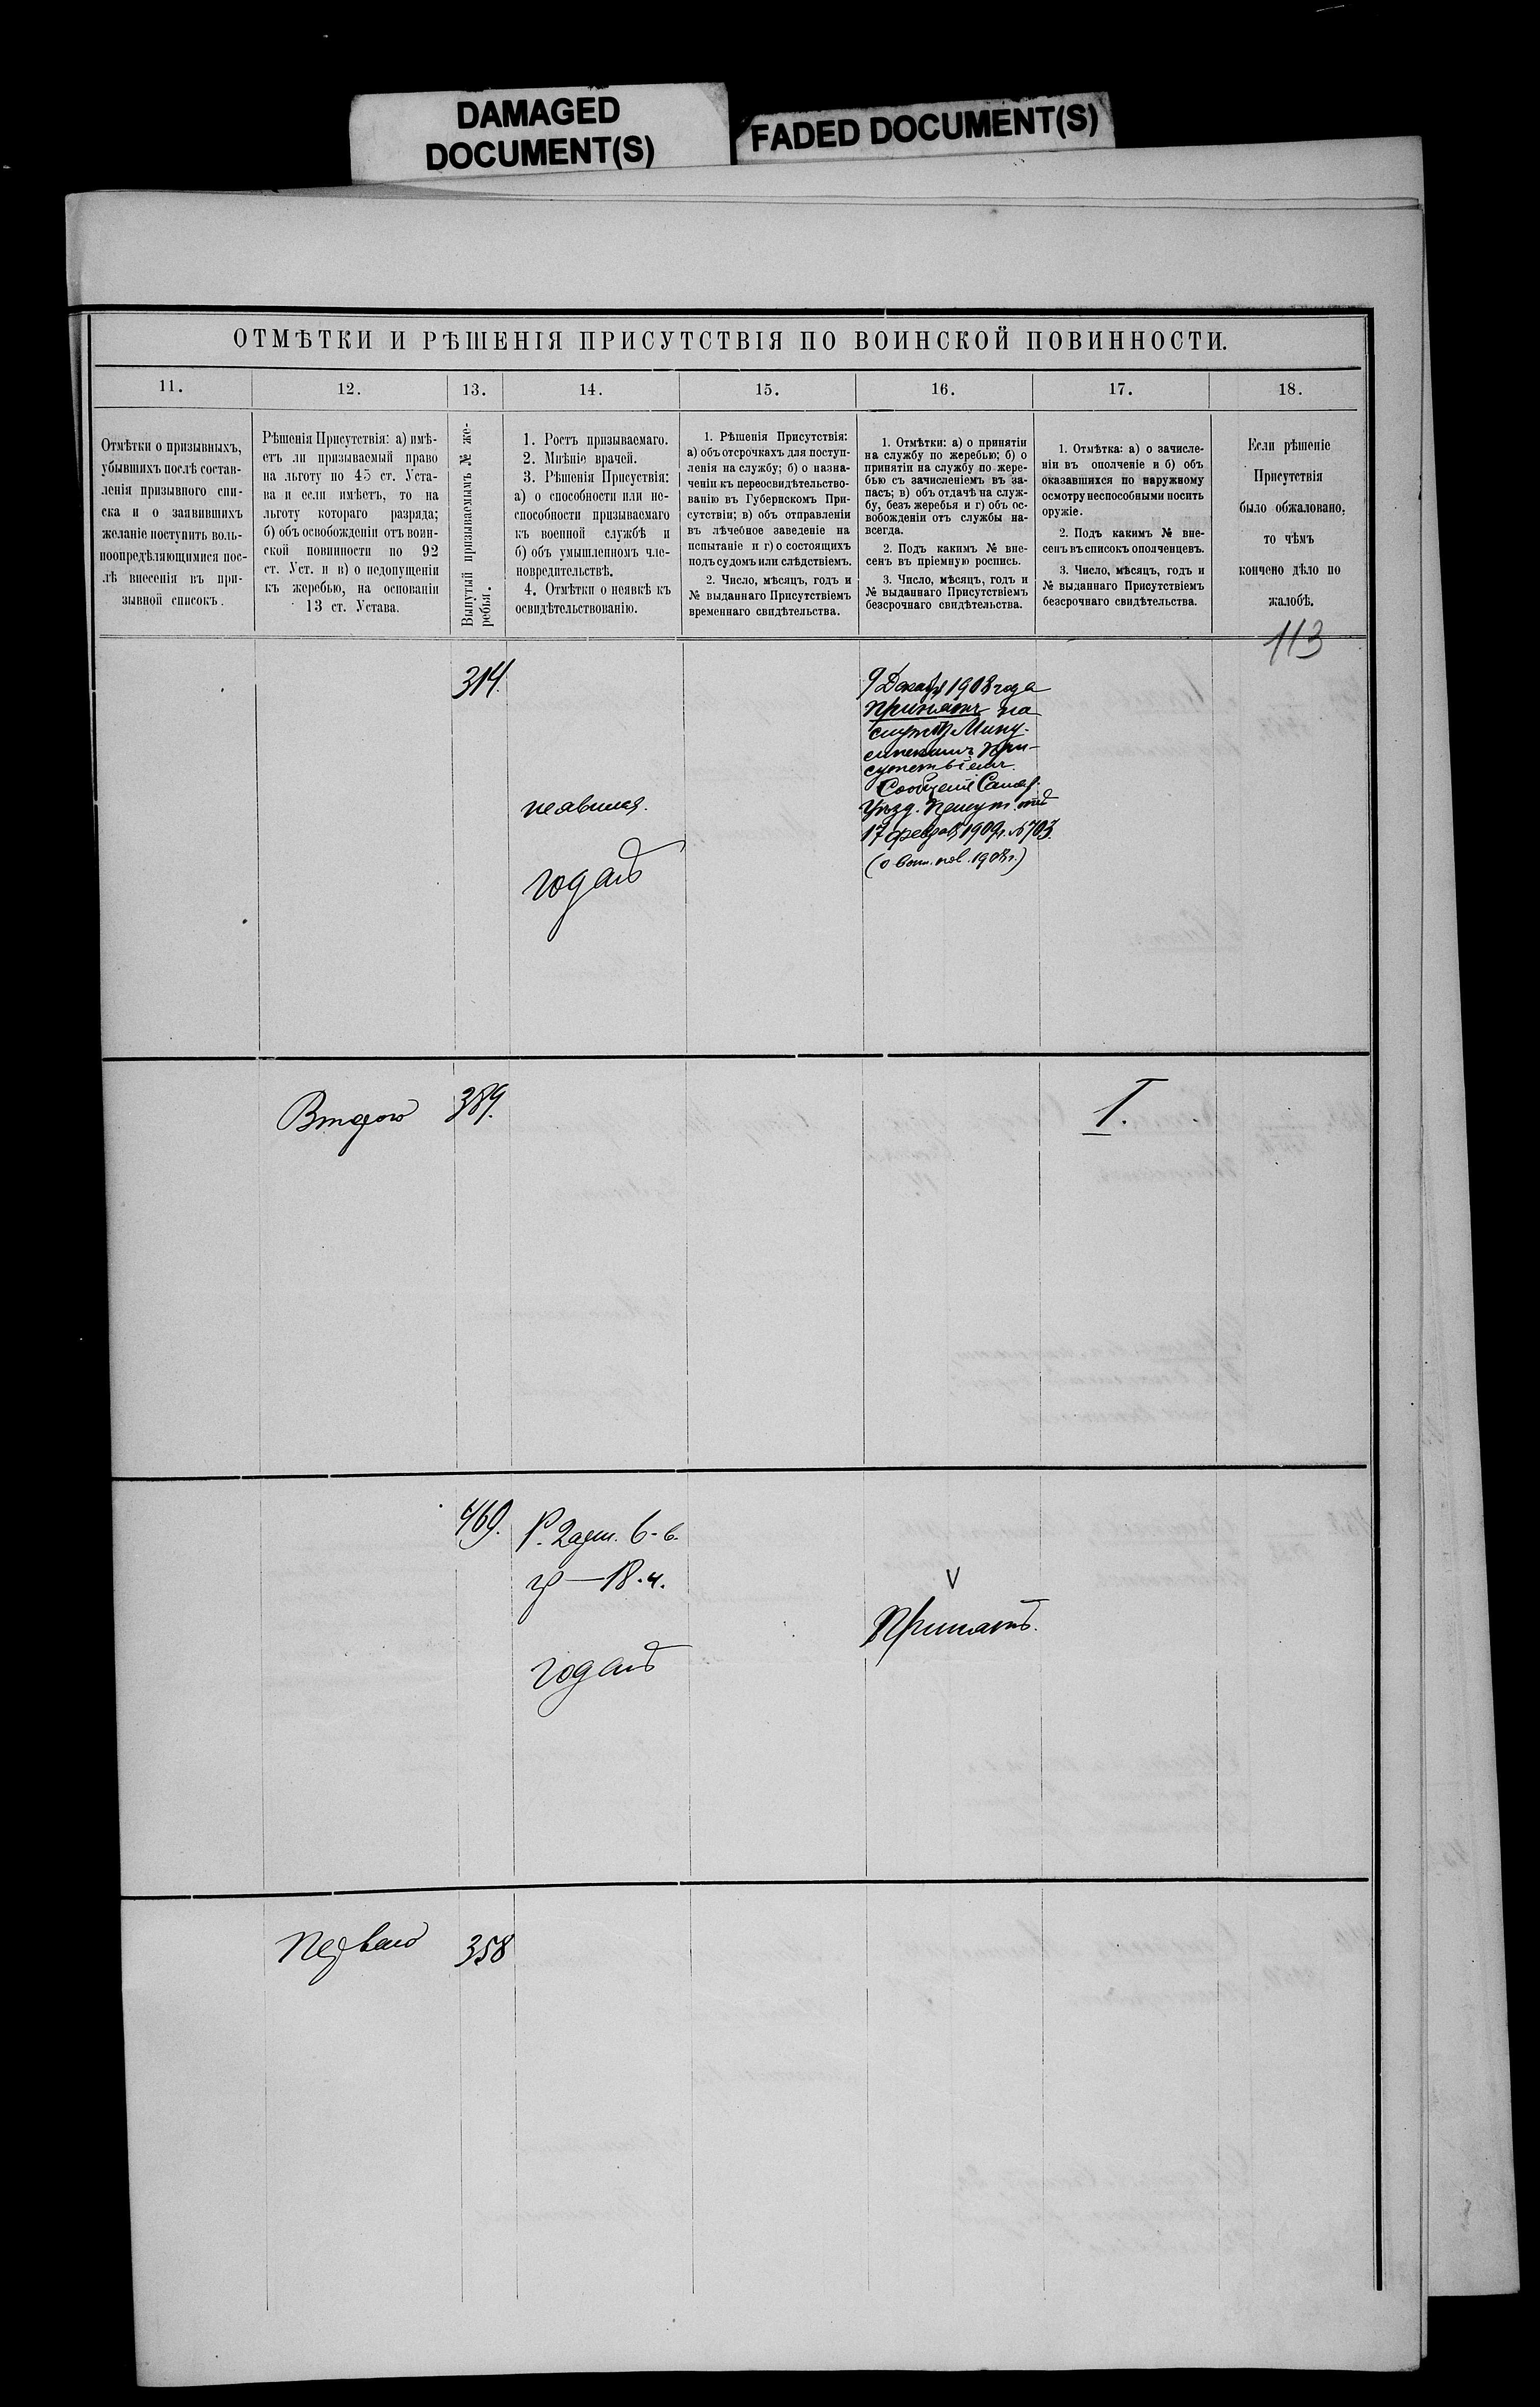 DAMAGED
DOCUMENT(S)
FADED DOCUMENT(S)
ОТМѢТКИ И РѢШЕНІЯ ПРИСУТСТВІЯ ПО ВОИНСКОЙ ПОВИННОСТИ.
11.
12.
13.
14.
15.
16.
17.
18.
Отмѣтки о призывныхъ,
убывшихъ послѣ состав-
ленія призывного спи-
ска и о заявившихъ
желаніе поступить воль-
ноопредѣляющимися пос-
лѣ внесенія въ при-
зывной списокъ.
Рѣшенія Присутствія: а) имѣ-
етъ ли призываемый право
на льготу по 45 ст. Уста-
ва и если имѣетъ, то на
льготу котораго разряда;
б) объ освобожденіи отъ воин-
ской повинности по 92
ст. Уст. и в) о недопущеніи
къ жеребью, на основаніи
13 ст. Устава.
Вынутый призываемымъ № же-
ребья.
1. Ростъ призываемаго.
2. Мнѣніе врачей.
3. Рѣшенія Присуствія:
а) о способности или не-
способности призываемаго
къ военной службѣ и
б) объ умышленномъ чле-
новредительствѣ.
4. Отмѣтки о неявкѣ къ
освидѣтельствованію.
1. Рѣшенія Присутствія:
а) объ отсрочкахъ для поступ-
ленія на службу; б) о назна-
ченіи къ переосвидѣтельство-
ванію въ Губернскомъ При-
сутствіи; в) объ отправленіи
въ лѣчебное заведеніе на
испытаніе и г) о состоящихъ
подъ судомъ или слѣдствіемъ.
2. Число, мѣсяцъ, годъ и
№ выданнаго Присутствіемъ
временнаго свидѣтельства.
1. Отмѣтки: а) о принятіи
на службу по жеребью; б) о
принятіи на службу по жере-
бью съ зачисленіемъ въ за-
пасъ; в) объ отдачѣ на служ-
бу, безъ жеребья и г) объ ос-
вобожденіи отъ службы на-
всегда.
2. Подъ какимъ № вне-
сенъ въ пріемную роспись.
3. Число, мѣсяцъ, годъ и
№ выданнаго Присутствіемъ
безсрочнаго свидѣтельства.
1. Отмѣтка: а) о зачисле-
ніи въ ополченіе и б) объ
оказавшихся по наружному
осмотру неспособными носить
оружіе.
2. Подъ какимъ № вне-
сенъ въ списокъ ополченцевъ.
3. Число, мѣсяцъ, годъ и
№ выданнаго Присутствіемъ
безсрочнаго свидѣтельства.
Если рѣшеніе
Присутствія
было обжаловано,
то чѣмъ
кончено дѣло по
жалобѣ.
113
314.
неявился.
годенъ
9 Декабря 1908 года
принятъ на
службу Мину-
синскимъ При-
сутствіемъ.
17 февраля 1909 г. № 703.
(о воин. пов. 1908 г.)
Второго
389.
I.
469.
Р. 2 арш. 6 - в.
18. ч.
годенъ
V
Принятъ.
Перваго
358